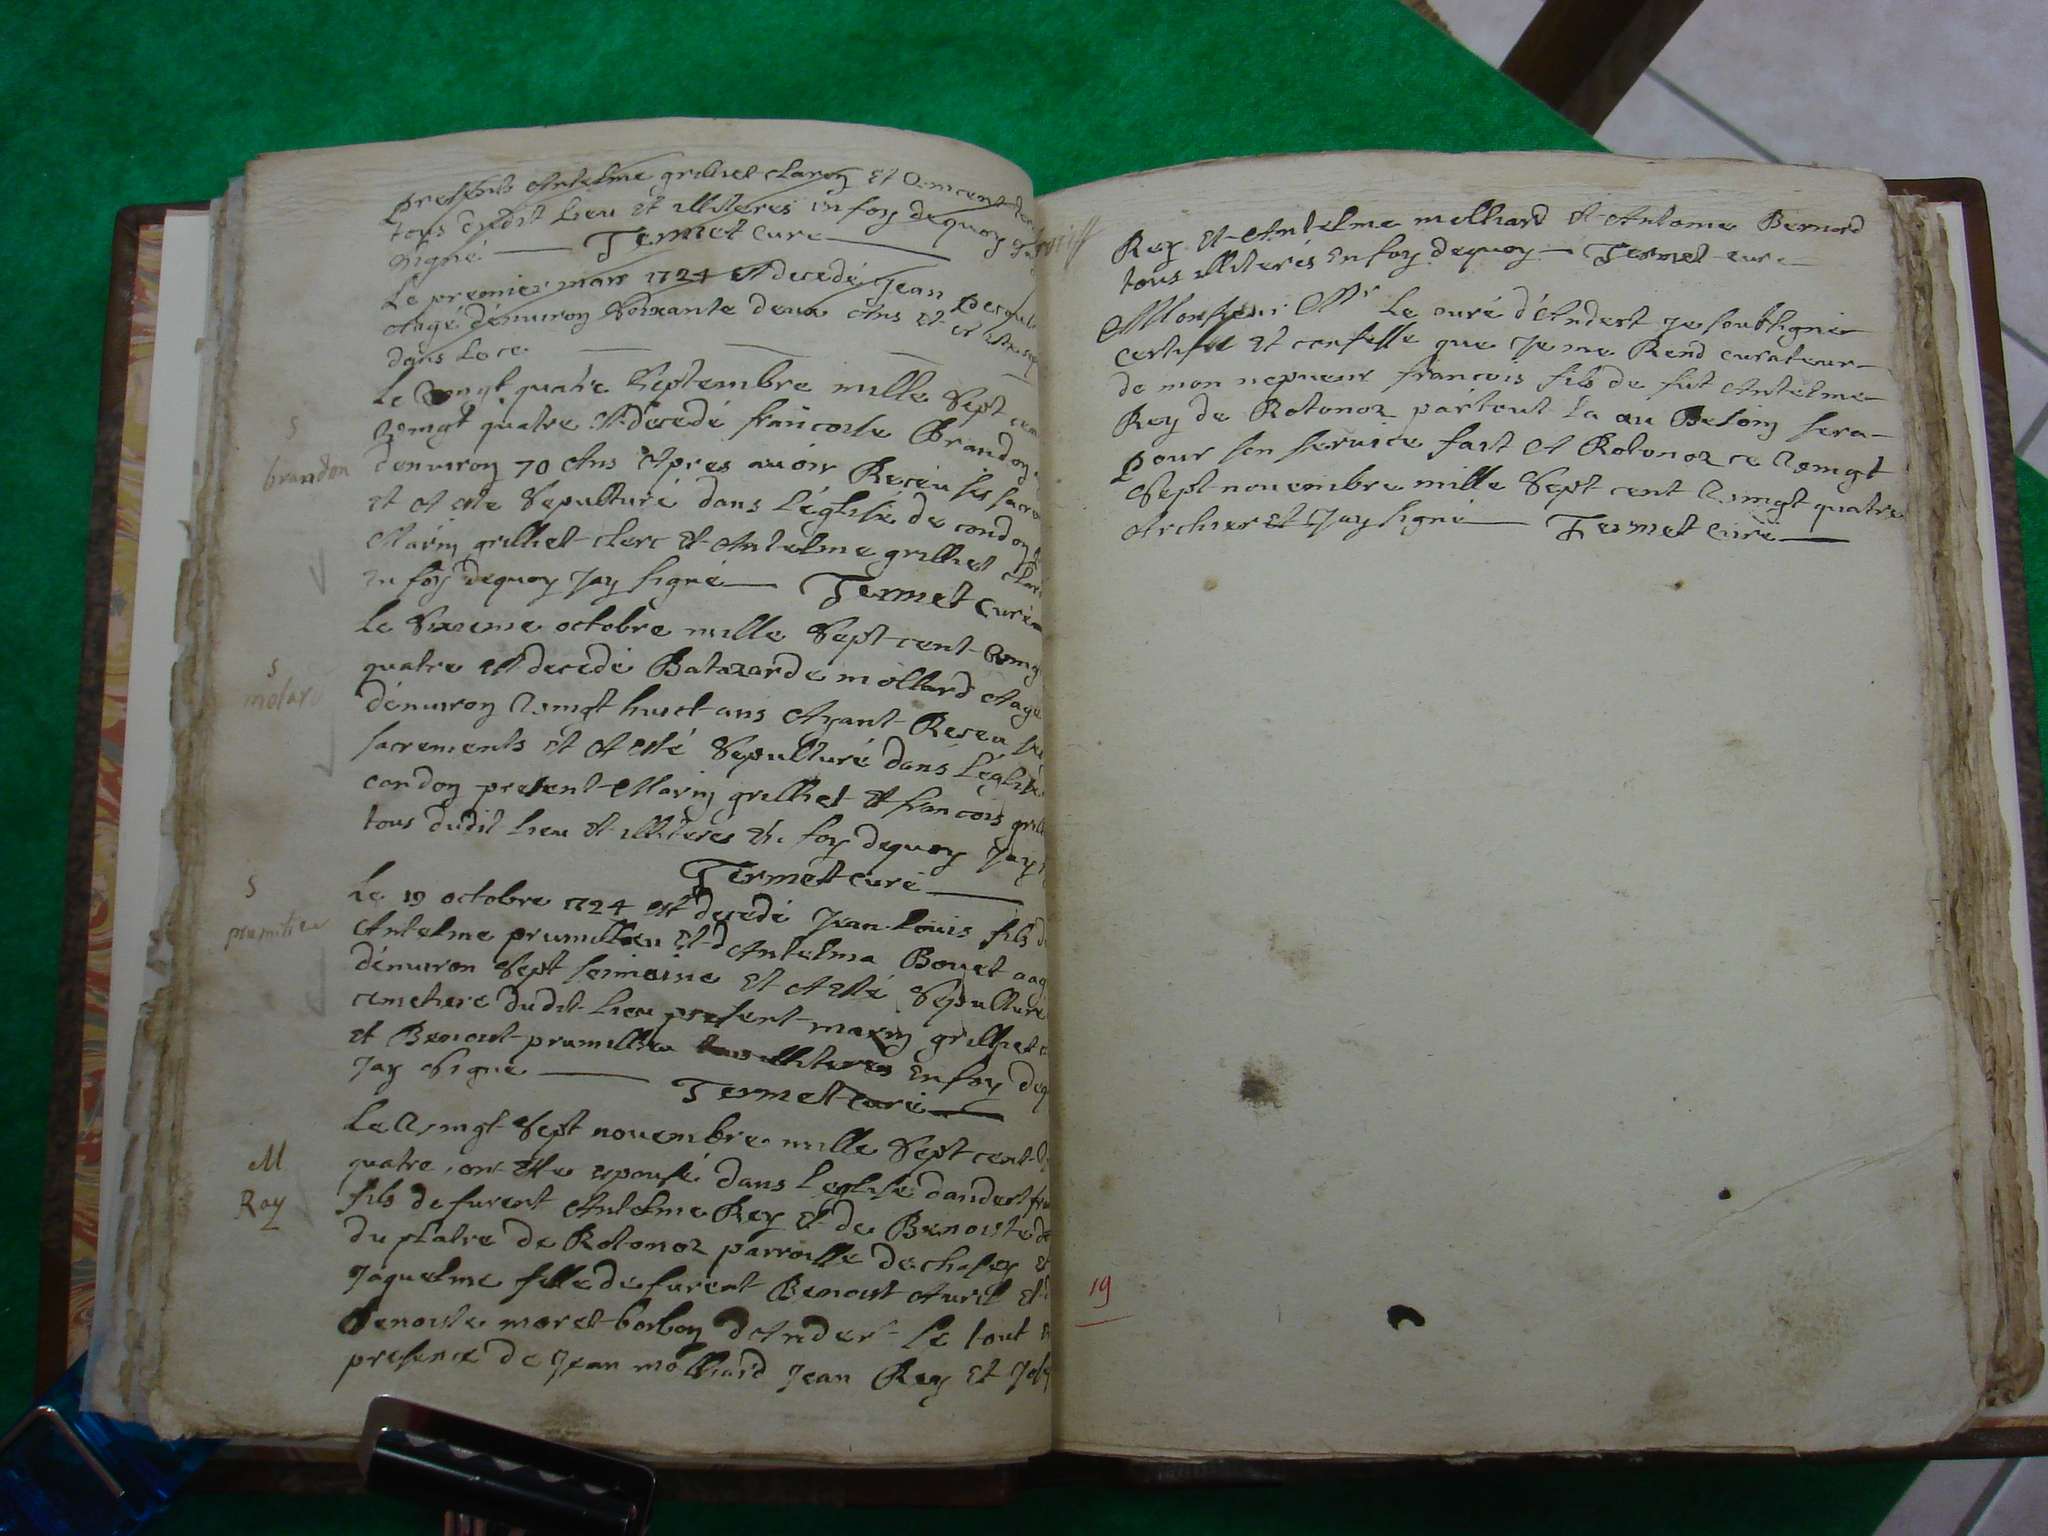 presents Antelme grilliet claron et Vincent
tous dudit lieu et illiteres in foy dequoy
signé Termet curé
Le premier mars 1724 est decedé Jean
Aagé denviron Soixante deux Ans et
dans le ce
Le Vingt quatre Septembre mille Sept cen
Vingt quatre est decedé francoise Brandon
denviron 70 Ans Apres avoir Receu ses sacre
et A este Sepulturé dans L'église de condon
Marin grilliet clerc et Antelme grilliet
en foy dequoy Jay signé Termet Curé
S
brandon
Le Sixieme octobre mille Sept cent Ving
quatre est decedé Batazarde mollard Aage
dénviron Vingt huict ans Ayant Receu
sacrements et A esté Sepulturé dans L'église
condon present Marin grilliet et francois
tous dudit lieu et illiteres en foy dequoy Jay
Termet curé
S
molard
Le 19 octobre 1724 est decedé Jean Louis fils
Antelme prumillieu et d Antelma Bouet
dénviron Sept semaine et A esté Sepulturé
cimetiere dudit lieu present marin grilliet
et Benoist prumillieu tous illiteres En foy deq
Jay Signe
Termet Curé
S
prumilieu
Le Vingt Sept novembre mille Sept cent
quatre ont este epousé dans l'eglise dandert
fils de furent Antelme Rey et de Benoiste
du platre de Rotonoz parroisse de chasey et
Jaquelme fille de furent Benoist Avril et
Benoiste moret borbon d'Ander le tout
presence de Jean molliard Jean Rey et
M
Rey
Rey et Antelme molliard et Antoine Bernard
tous illiterés En foy dequoy Termet curé
Monsieur Mr Le curé d'Andert Je soubsigne
certifie et confesse que Je me Rend curateur
de mon nepueur francois fils de fut Antelme
Rey de Rotonoz partout la au Besoin sera
pour son service fait A Rotonoz ce Vingt
Sept novembre mille Sept cent Vingt quatre
et Jay signé Termet Curé
19